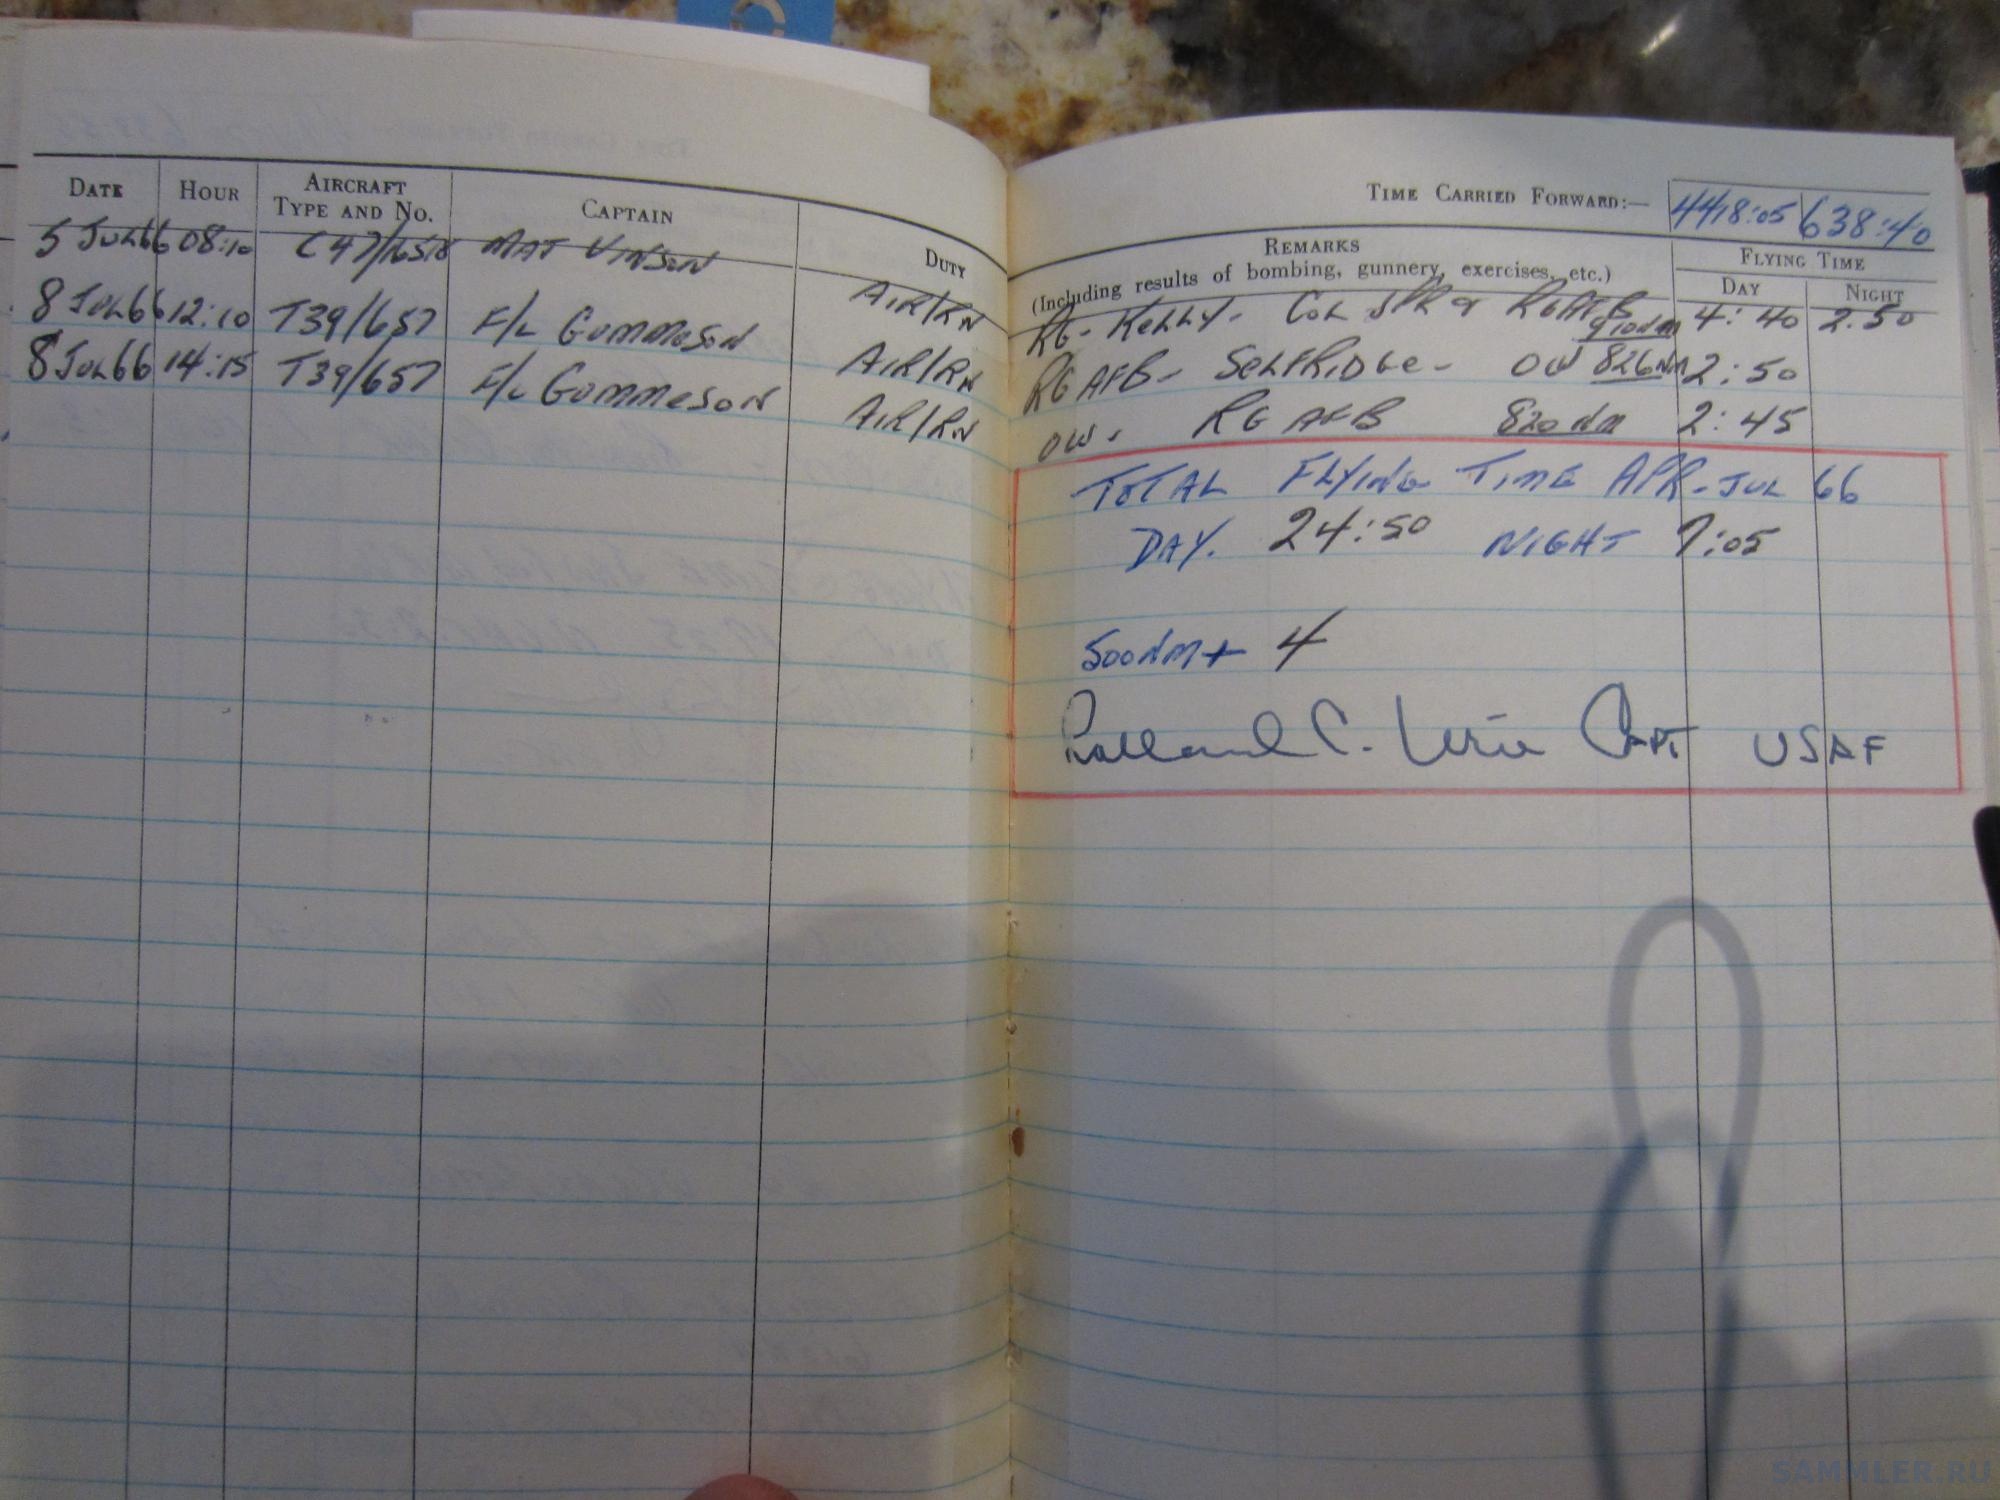 DATE HOUR AIRCRAFT TYPE AND NO. CAPTAIN DUTY
5 JUL 66 08:10 C47/16518 MAJ VINSON AIR/RN
8 JUL 66 12:10 T39/657 F/L GUMMESON AIR/RN
8 JUL 66 14:15 T39/657 F/L GUMMESON AIR/RN
TIME CARRIED FORWARD:— 4418:05 638:40
REMARKS
(Including results of bombing, gunnery, exercises, etc.)
FLYING TIME
DAY NIGHT
RG- KELLY- COL SPRG RGAFB 910NM 4:40 2.50
RG AFB- SELFRIDGE- OW 826NM 2:50
OW- RG AFB 820NM 2:45
TOTAL FLYING TIME APR-JUL 66
DAY. 24:50 NIGHT 7:05
500NM+ 4
C. CAPT USAF
SAMMLER.RU